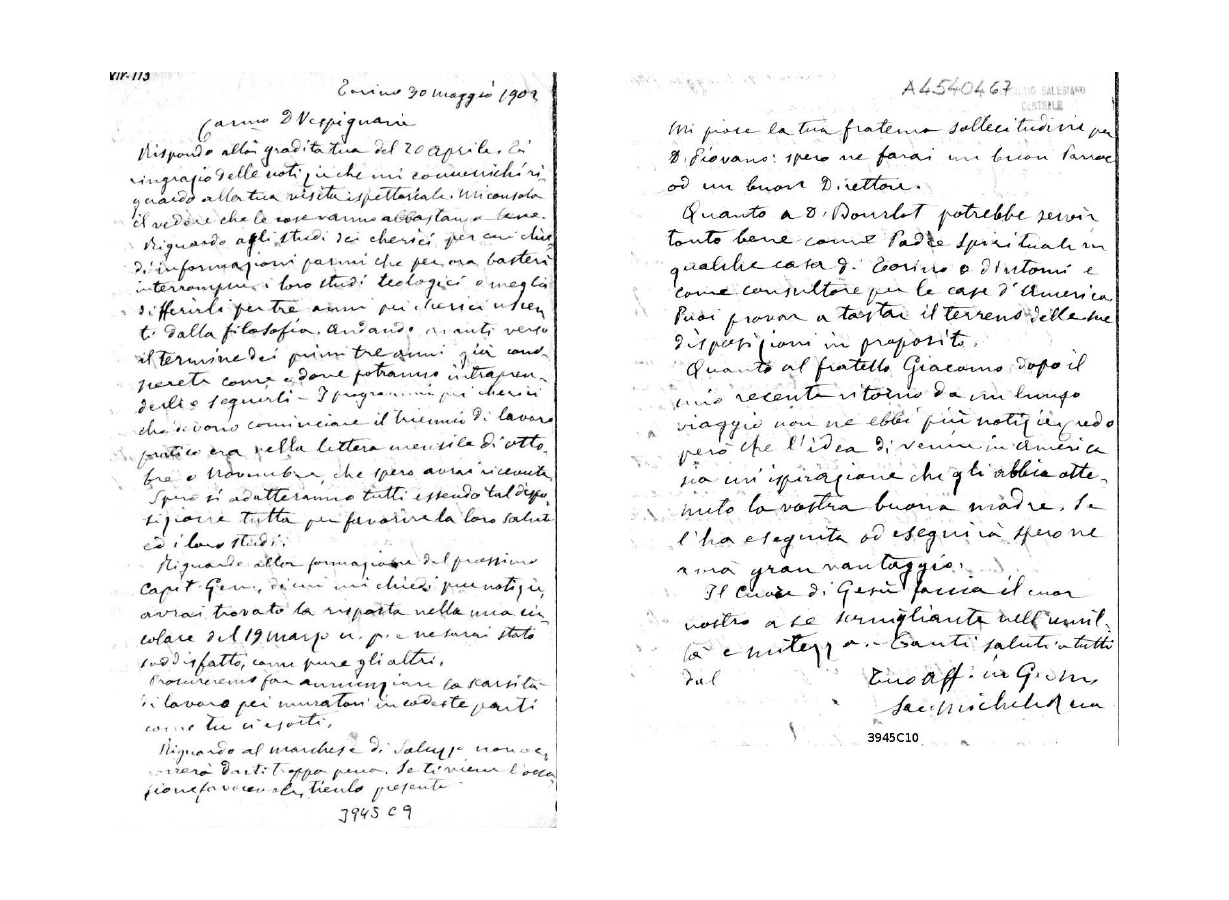 XIV-113
Torino 30 maggio 1902
Carmo D Vespignani
Rispondo alla gradita tua del 20 aprile. Ti
ringrazio delle notizie che mi comunichi ri-
guardo alla tua visita ispettoriale. Mi consola
il vedere che le cose vanno abbastanza bene.
Riguardo agli studi dei chierici per cui chie-
di informazioni parmi che per ora basterà
interrompere i loro studi teologici o meglio
differirli per tre anni pei chierici uscen
ti dalla filosofia. Andando avanti verso
il termine dei primi tre anni già cono-
scerete come e dove potranno intrapren-
derli e seguirli - I programmi pei chierici
che devono cominciare il triennio di lavoro
pratico era nella lettera mensile di otto-
bre o Novembre, che spero avrai ricevuta.
Spero si adatteranno tutti essendo tal dispo
sizione tutta per favorire la loro salute
ed i loro studi.
Riguardo alla formazione del prossimo
Capit. Gen., di cui mi chiedi pure notizie,
avrai trovato la risposta nella mia cir
colare del 19 marzo u. p. e ne sarai stato
soddisfatto, come pure gli altri.
Procureremo far annunziare la scarsità
di lavoro pei muratori in codeste parti
come tu ci esorti.
Riguardo al marchese di Saluzzo non oc
correrà darti troppa pena. Se ti viene l'occa
sione favorevole, tienlo presente
3945 C9
A4540467
SALESIANO
CENTRALE
Mi piace la tua fraterna sollecitudine per
D. Giovano: spero ne farai un buon Parroco
od un buon Direttore.
Quanto a D. Bourlot potrebbe servir
tanto bene come Padre Spirituale in
qualche casa di Torino o dintorni e
come consultore per le case d'America
Puoi provar a tastar il terreno delle sue
disposizioni in proposito.
Quanto al fratello Giacomo dopo il
mio recente ritorno da un lungo
viaggio non ne ebbi più notizie, credo
però che l'idea di venire in America
sia un'ispirazione che gli abbia otte-
nuto la vostra buona madre. Se
l'ha eseguita od eseguirà spero ne
avrà gran vantaggio.
Il Cuore di Gesù faccia il cuor
nostro a se somigliante nell'umil-
tà e mitezza. - Tanti saluti a tutti
dal Tuo aff. in G. e M.
Sac. Michele Rua
3945C10